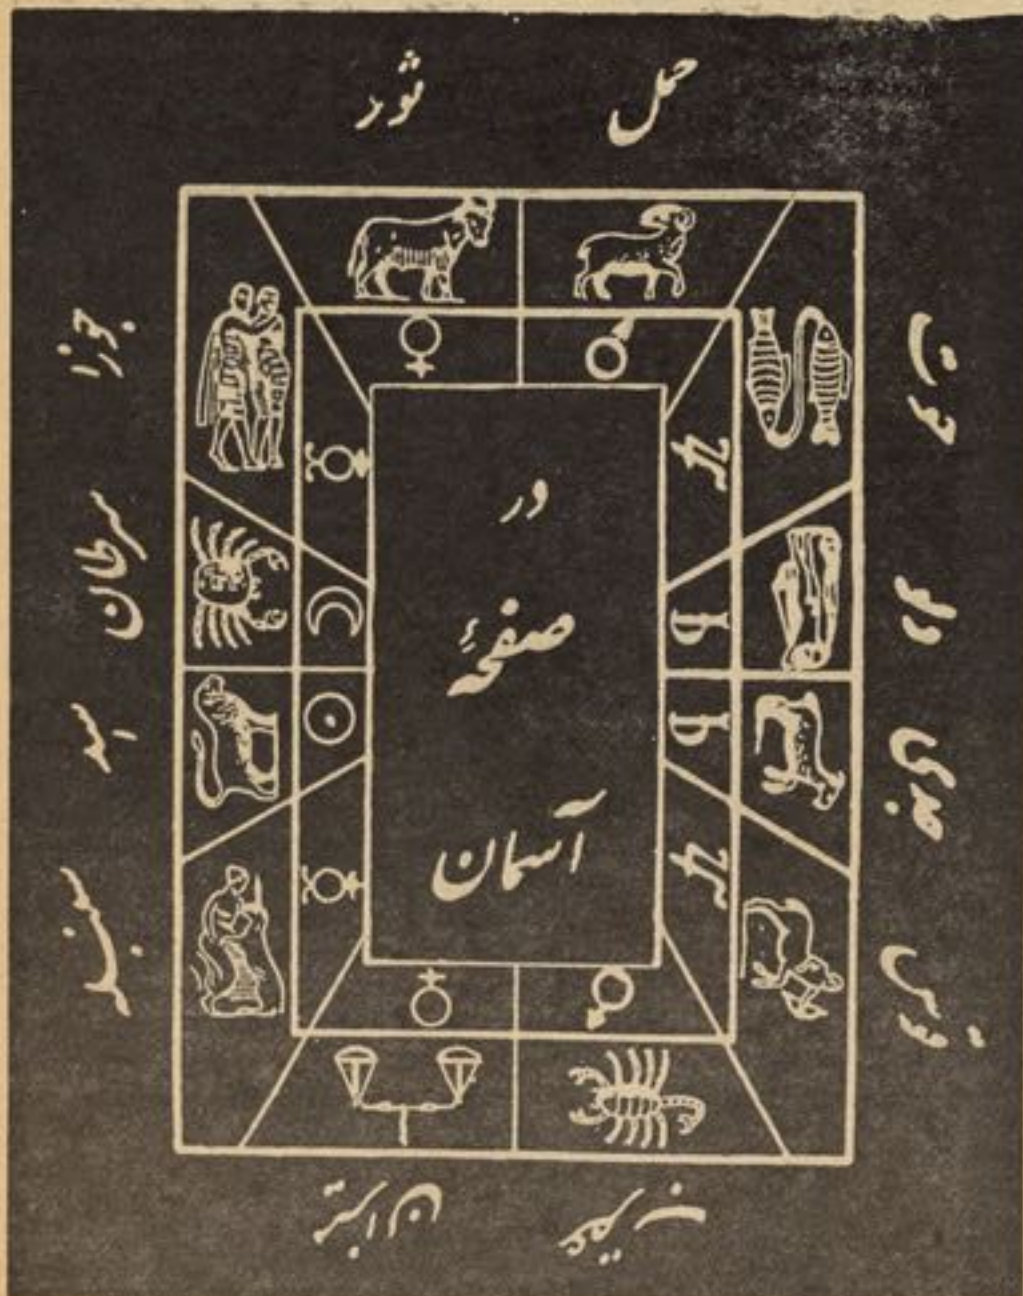 حمل
ثور
جوزا
سرطان
اسد
سنبله
میزان
عقرب
قوس
جدی
دلو
حوت
در
صفحهٔ
آسمان